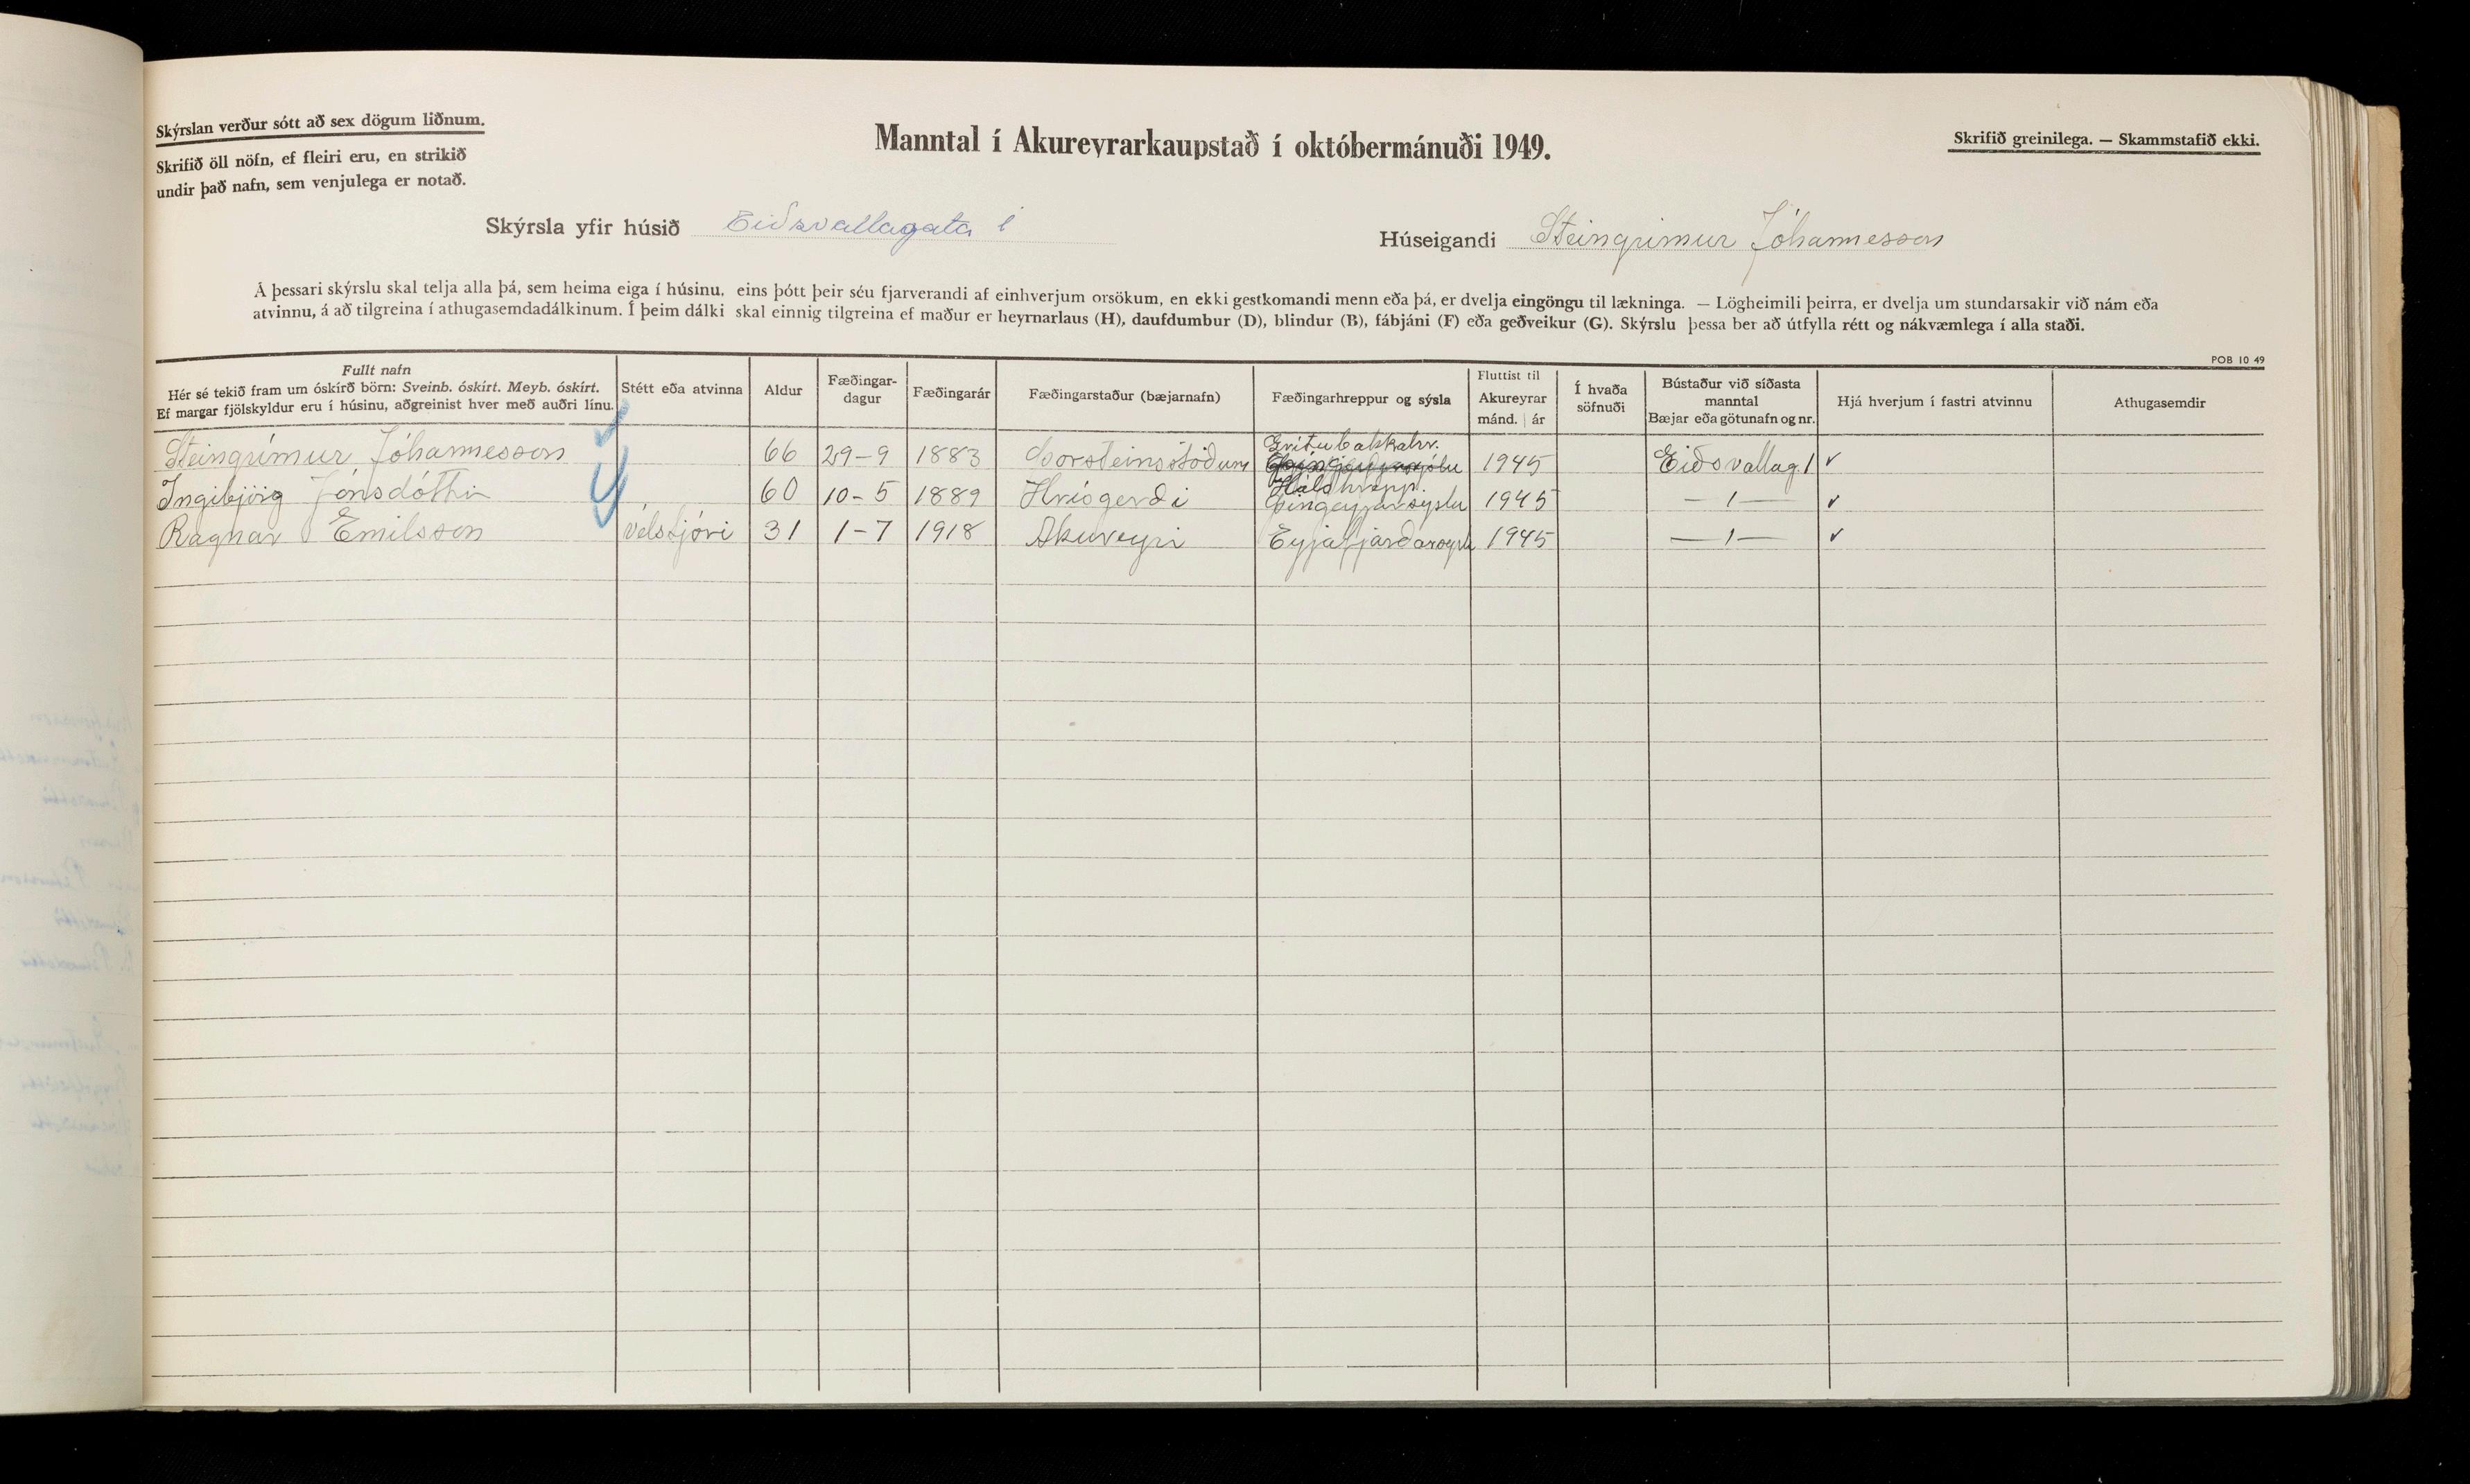 Skýrslan verður sótt að sex dögum liðnum.
Skrifið öll nöfn, ef fleiri eru, en strikið
undir það nafn, sem venjulega er notað.
Manntal í Akureyrarkaupstað í októbermánuði 1949.
Skrifið greinilega. — Skammstafið ekki.
Skýrsla yfir húsið Eiðsvallagata 1
Húseigandi Steingrimur Jóhannesson
Á þessari skýrslu skal telja alla þá, sem heima eiga í húsinu, eins þótt þeir séu fjarverandi af einhverjum orsökum, en ekki gestkomandi menn eða þá, er dvelja eingöngu til lækninga. — Lögheimili þeirra, er dvelja um stundarsakir við nám eða
atvinnu, á að tilgreina í athugasemdadálkinum. Í þeim dálki skal einnig tilgreina ef maður er heyrnarlaus (H), daufdumbur (D), blindur (B), fábjáni (F) eða geðveikur (G). Skýrslu þessa ber að útfylla rétt og nákvæmlega í alla staði.
POB 10 49
Fullt nafn
Hér sé tekið fram um óskírð börn: Sveinb. óskírt. Meyb. óskírt.
Ef margar fjölskyldur eru í húsinu, aðgreinist hver með auðri línu.
Stétt eða atvinna
Aldur
Fæðingar-
dagur
Fæðingarár
Fæðingarstaður (bæjarnafn)
Fæðingarhreppur og sýsla
Fluttist til
Akureyrar
mánd. | ár
Í hvaða
söfnuði
Bústaður við síðasta
manntal
Bæjar eða götunafn og nr.
Hjá hverjum í fastri atvinnu
Athugasemdir
Steingrímur Jóhannesson 66 29-9 1883 Þorsteinsstöðum Grítubakkahr. 1945 Eiðsvallag. 1 ✓
Ingibjörg Jónsdóttir 60 10-5 1889 Hrísgerði Hálshrepp. Þingeyjarsýslu 1945 — 1 — ✓
Ragnar Emilsson vélstjóri 31 1-7 1918 Akureyri Eyjafjarðarsýsl 1945 — 1 — ✓